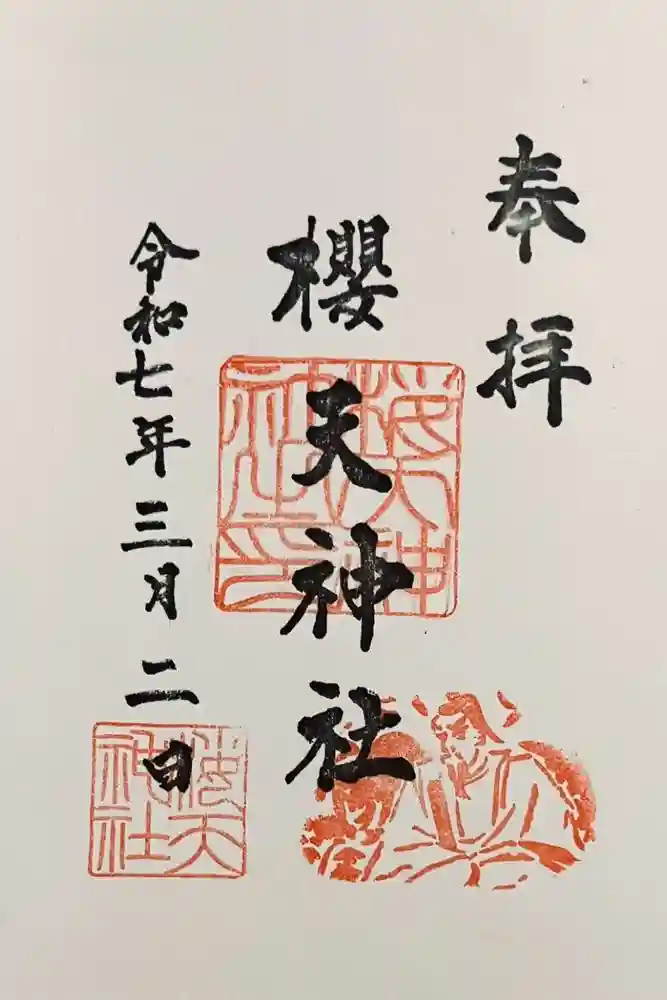 奉拝
櫻天神社
桜天神社印
令和七年三月二日
桜天神社